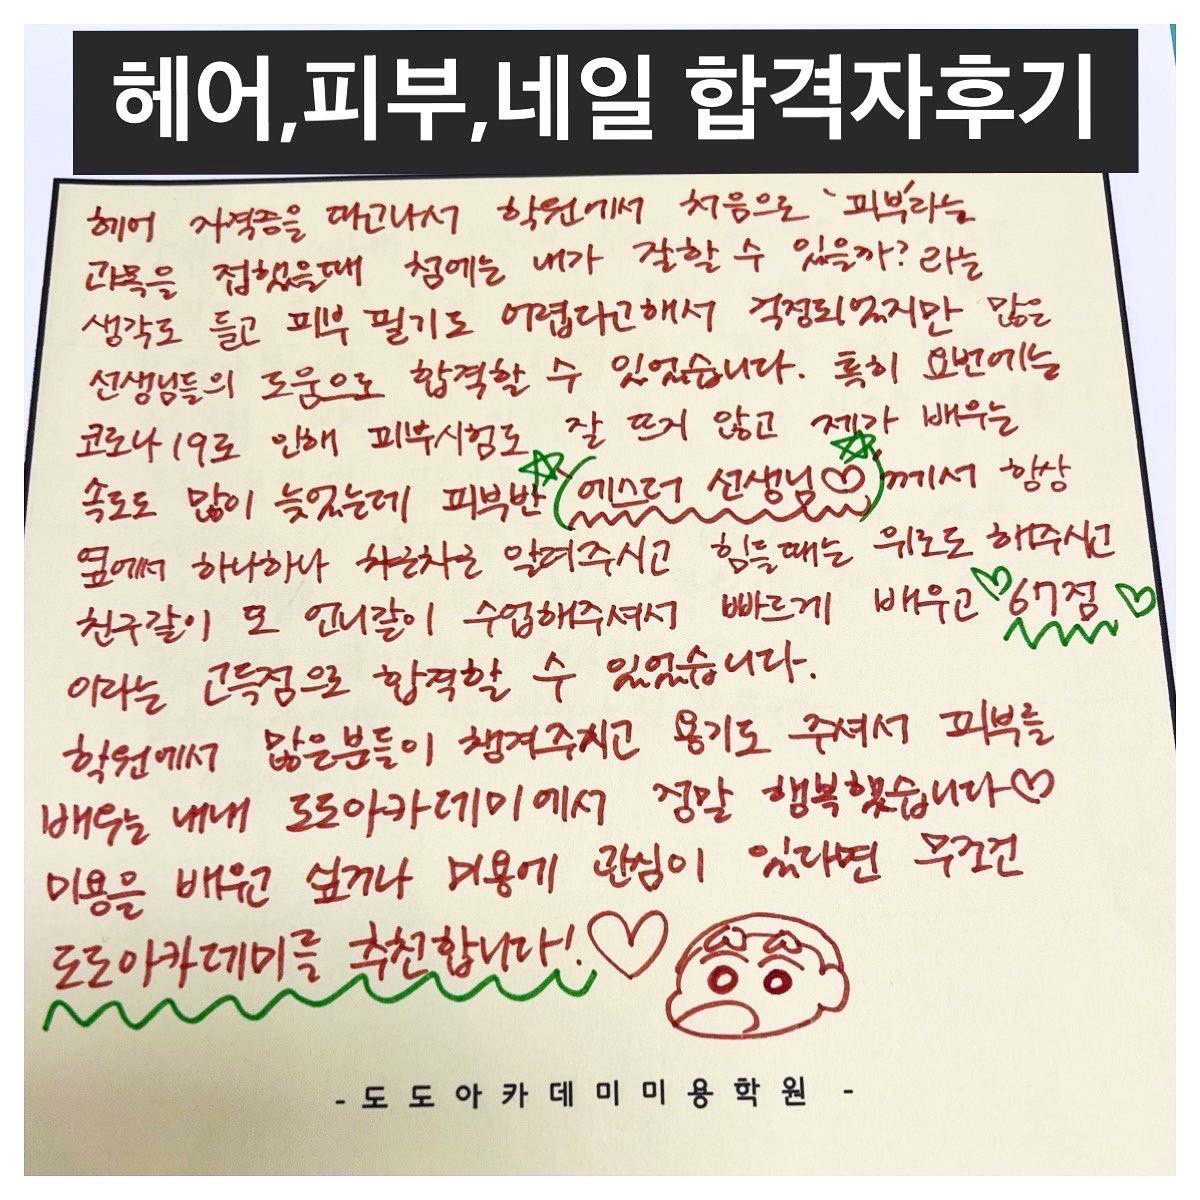 헤어,피부,네일 합격자후기
헤어 자격증을 따고나서 학원에서 처음으로 '피부'라는
과목을 접했을때 첨에는 내가 잘할 수 있을까? 라는
생각도 들고 피부 필기도 어렵다고해서 걱정되었지만 많은
선생님들의 도움으로 합격할 수 있었습니다. 특히 요번에는
코로나19로 인해 피부시험도 잘 뜨지 않고 제가 배우는
속도도 많이 늦었는데 피부반 (에스더 선생님♡)께서 항상
옆에서 하나하나 차근차근 알려주시고 힘들때는 위로도 해주시고
친구같이 또 언니같이 수업해주셔서 빠르게 배우고 ♡67점♡
이라는 고득점으로 합격할 수 있었습니다.
학원에서 많은분들이 챙겨주시고 용기도 주셔서 피부를
배우는 내내 도도아카데미에서 정말 행복했습니다♡
미용을 배우고 싶거나 미용에 관심이 있다면 무조건
도도아카데미를 추천합니다!♡
- 도도아카데미미용학원 -